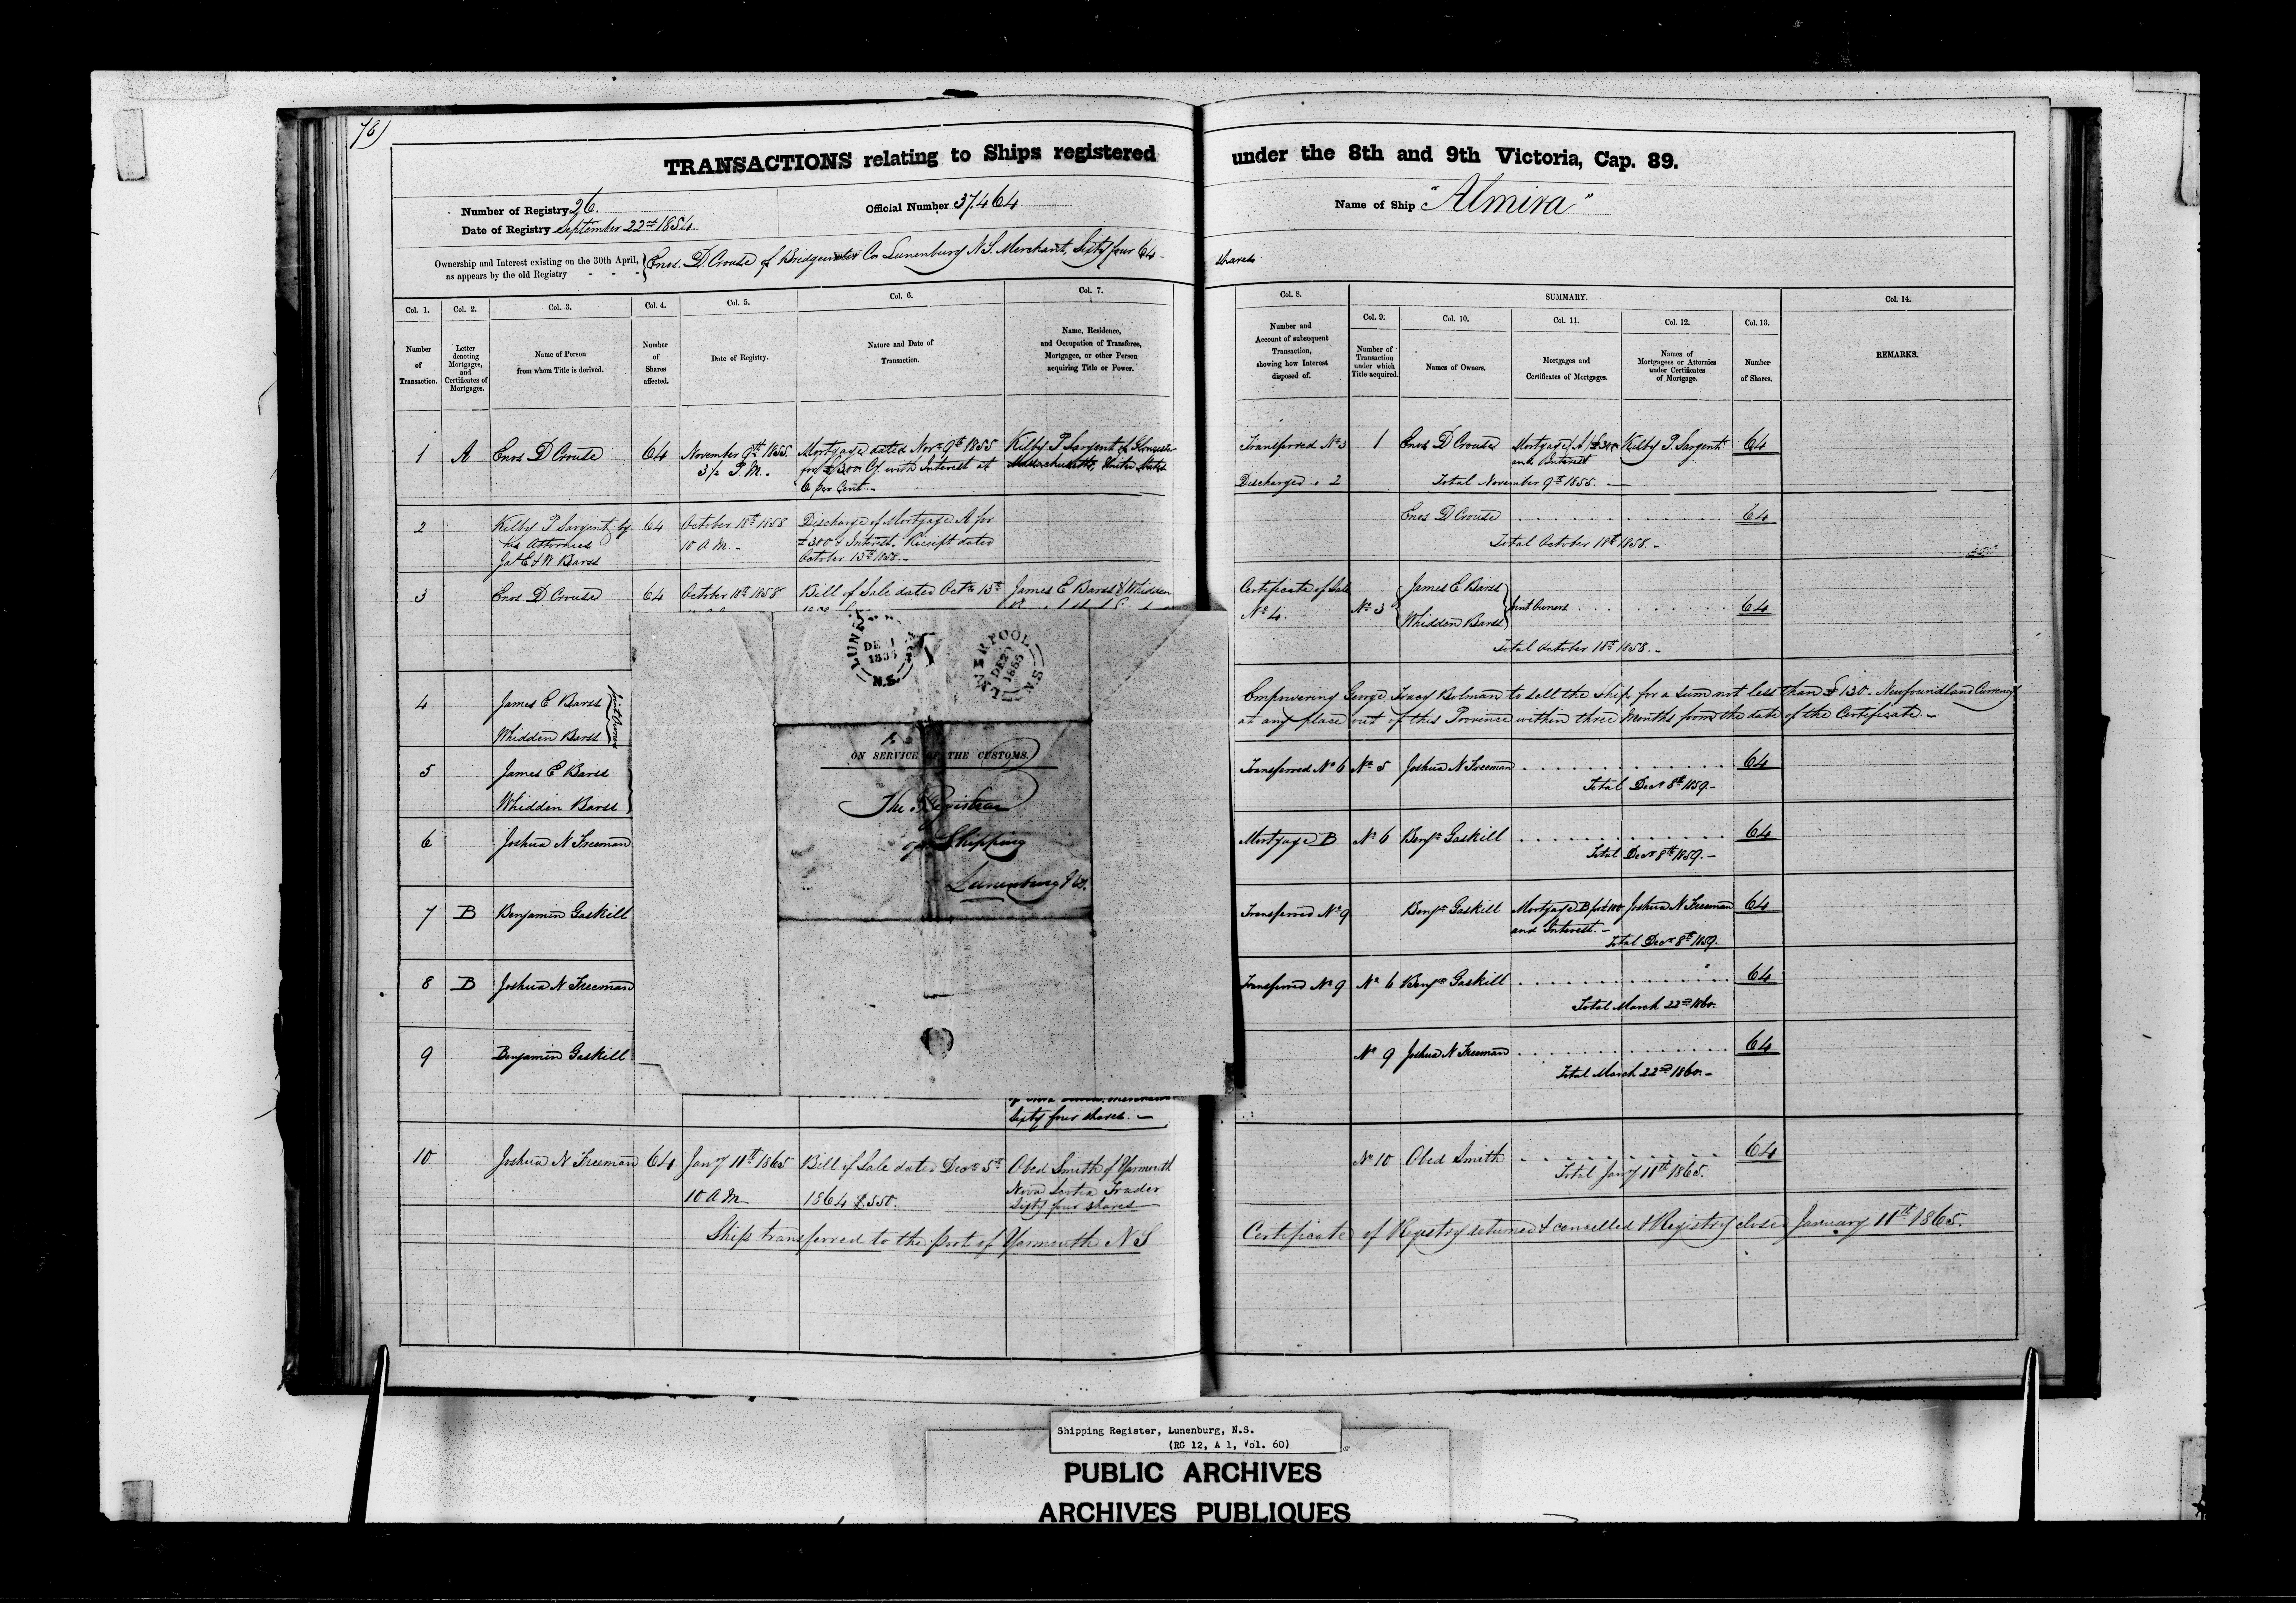 78)
TRANSACTIONS relating to Ships registered under the 8th and 9th Victoria, Cap. 89.
Number of Registry 26.
Date of Registry September 22nd 1854
Official Number 37.464
Name of Ship "Almira"
Ownership and Interest existing on the 30th April, as appears by the old Registry - - -
Enos. D. Crouse of Bridgewater Co Lunenburg N.S. Merchant, Sixty four 64 - shares
Col. 1. Number of Transaction.
Col. 2. Letter denoting Mortgages, and Certificates of Mortgages.
Col. 3. Name of Person from whom Title is derived.
Col. 4. Number of Shares affected.
Col. 5. Date of Registry.
Col. 6. Nature and Date of Transaction.
Col. 7. Name, Residence, and Occupation of Transferee, Mortgagee, or other Person acquiring Title or Power.
Col. 8. Number and Account of subsequent Transaction, showing how Interest disposed of.
SUMMARY.
Col. 9. Number of Transaction under which Title acquired.
Col. 10. Names of Owners.
Col. 11. Mortgages and Certificates of Mortgages.
Col. 12. Names of Mortgagees or Attornies under Certificates of Mortgage.
Col. 13. Number of Shares.
Col. 14. REMARKS.
1 A Enos D Crouse 64
November 9th 1855
3½ P.M. -
Mortgage dated Novr 9th 1855
for £300 Cy. with Interest at
6 per Cent. -
Kilby P Sargent of Gloucester
Massachusetts, United States
Transferred No 3
Discharged . 2
1 Enos D Crouse Mortgage (A) £300 Kilby P. Sargent 64
and Interest
Total November 9th 1855. -
2 Kilby P Sargent by 64
his Attornies
Jas E & W Barss
October 18th 1858
10 A M. -
Discharge of Mortgage A for
£300 & Interest. Receipt dated
October 13th 1858. -
Enos D Crouse 64
Total October 18th 1858. -
3 Enos D Crouse 64 October 18th 1858
Bill of Sale dated Octr 13th
James E Barss & Whidden
Certificate of Sale
No 4.
No 3 James E Barss
Whidden Barss
Joint Owners 64
Total October 18th 1858. -
4 James E Barss
Whidden Barss
Joint Owners
Empowering George Tracy Bolman to sell the ship for a sum not less than £130 - Newfoundland Currency
at any place out of this Province within three Months from the date of the Certificate. -
5 James E Barss
Whidden Barss
Transferred No 6 No 5 Joshua N Freeman 64
Total Decr 8th 1859. -
6 Joshua N Freeman
Mortgage B No 6 Benjn Gaskill 64
Total Decr 8th 1859. -
7 B Benjamin Gaskill
Transferred No 9 Benjn Gaskill Mortgage B for £100 Joshua N Freeman 64
and Interest. -
Total Decr 8th 1859.
8 B Joshua N Freeman
Transferred No 9 No 6 Benjn Gaskill 64
Total March 22nd 1860.
9 Benjamin Gaskill
No 9 Joshua N Freeman 64
Total March 22nd 1860. -
Sixty four shares. -
10 Joshua N Freeman 64
Jany 11th 1865
10 A M
Bill of Sale dated Decr 5th
1864 £550.
Obed Smith of Yarmouth
Nova Scotia Trader
Sixty four shares
No 10 Obed Smith 64
Total Jany 11th 1865.
Ship transferred to the port of Yarmouth N S
Certificate of Registry returned & cancelled & Registry closed January 11th 1865.
DE 1
N.S.
LIVERPOOL
DE 20
1855
N.S.
ON SERVICE OF THE CUSTOMS.
The Registrar
of Shipping
Lunenburg
Shipping Register, Lunenburg, N.S.
(RG 12, A 1, Vol. 60)
PUBLIC ARCHIVES
ARCHIVES PUBLIQUES